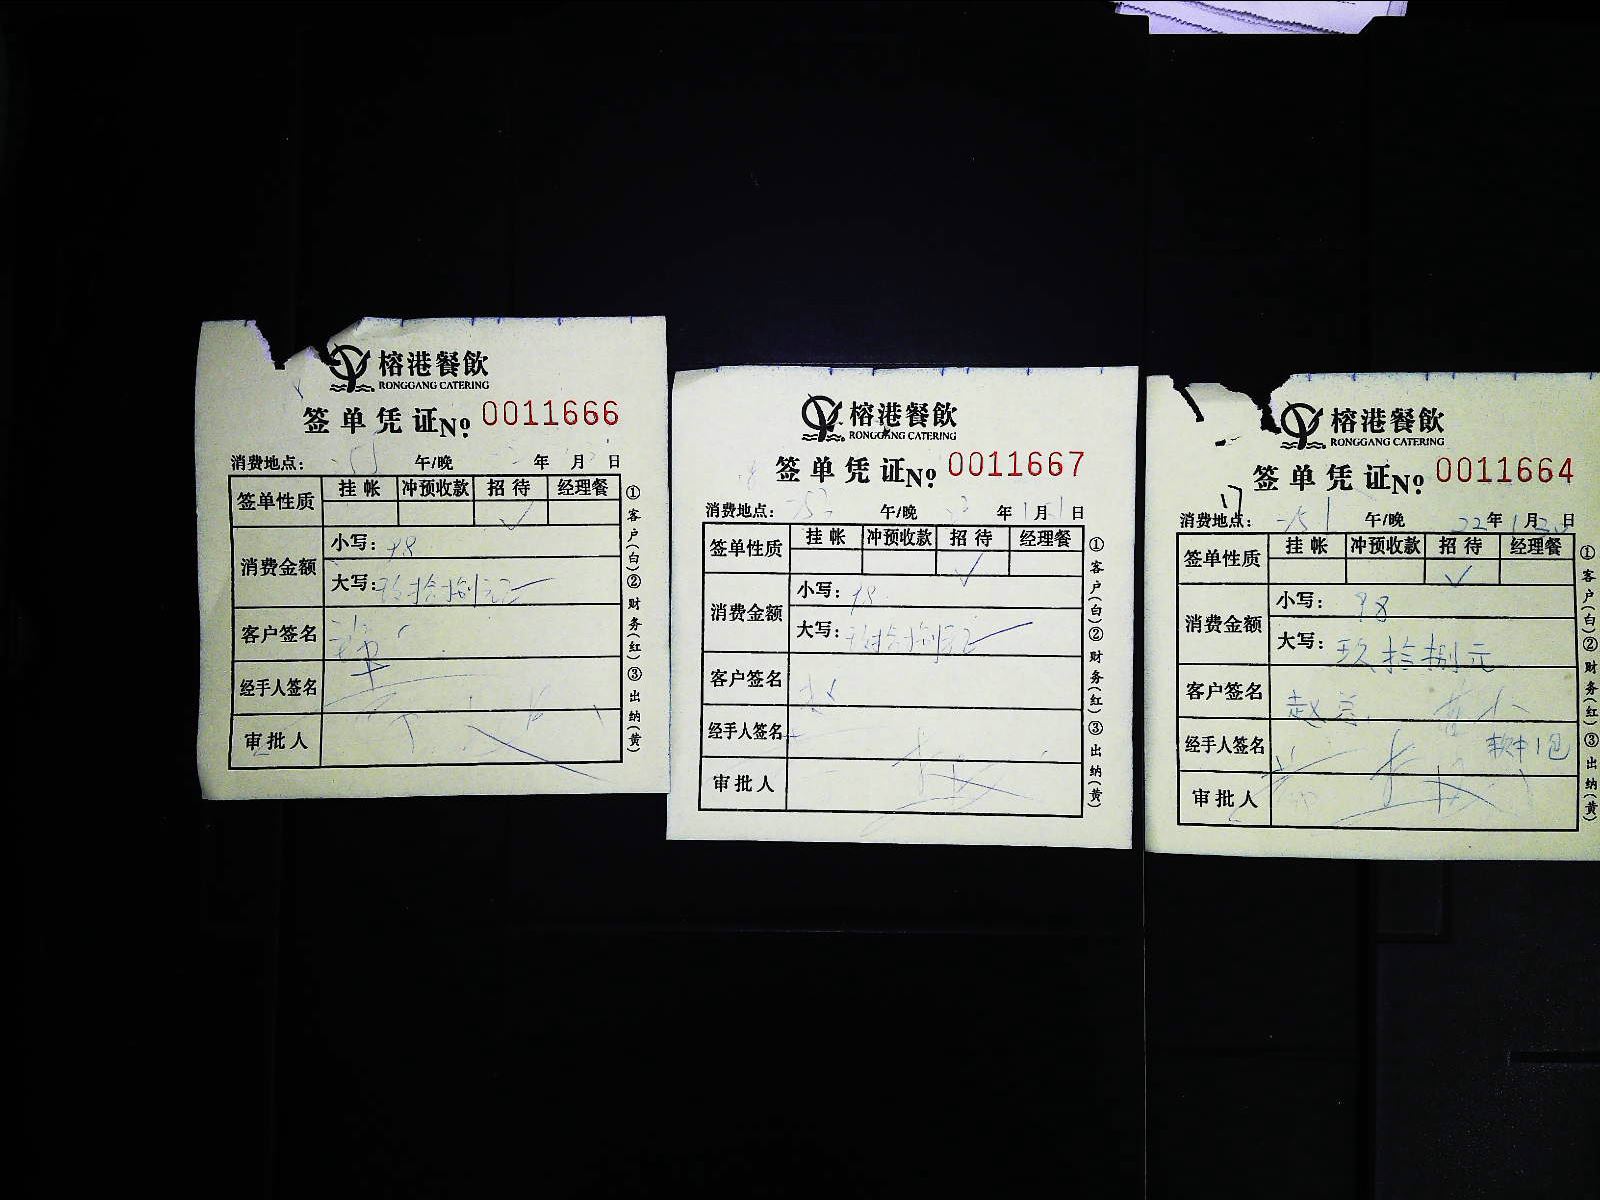 榕港餐飲
RONGGANG CATERING
签单凭证No. 0011666
消费地点： 午/晚 年 月 日
签单性质 挂帐 冲预收款 招待 经理餐
✓
消费金额 小写：98
大写：玖拾捌元
客户签名
经手人签名
审批人
①客户(白)②财务(红)③出纳(黄)
榕港餐飲
RONGGANG CATERING
签单凭证No. 0011667
消费地点： 午/晚 年 月 日
签单性质 挂帐 冲预收款 招待 经理餐
✓
消费金额 小写：98
大写：玖拾捌元
客户签名
经手人签名
审批人
①客户(白)②财务(红)③出纳(黄)
榕港餐飲
RONGGANG CATERING
签单凭证No. 0011664
消费地点： 午/晚 22年1月 日
签单性质 挂帐 冲预收款 招待 经理餐
✓
消费金额 小写：98
大写：玖拾捌元
客户签名 赵总
经手人签名 软中1包
审批人
①客户(白)②财务(红)③出纳(黄)